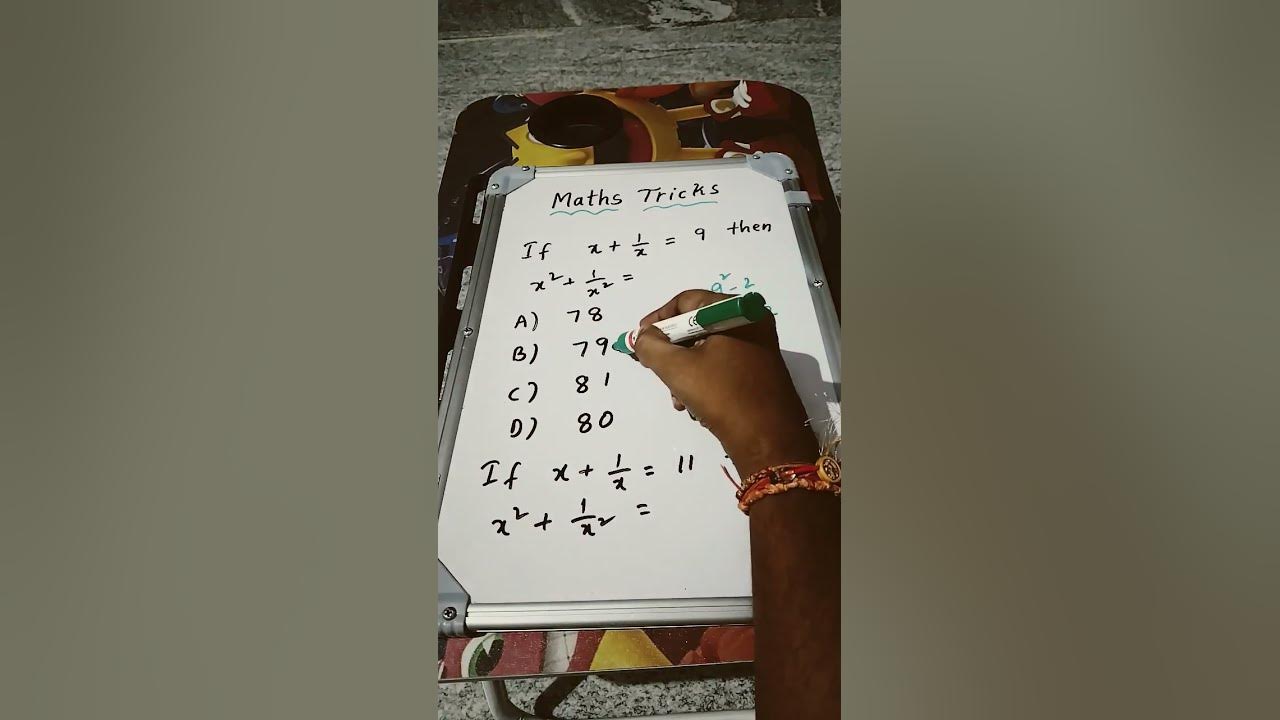 Maths Tricks
If x + 1/x = 9 then
x² + 1/x² =
9² - 2
A) 78
B) 79
C) 81
D) 80
If x + 1/x = 11
x² + 1/x² =